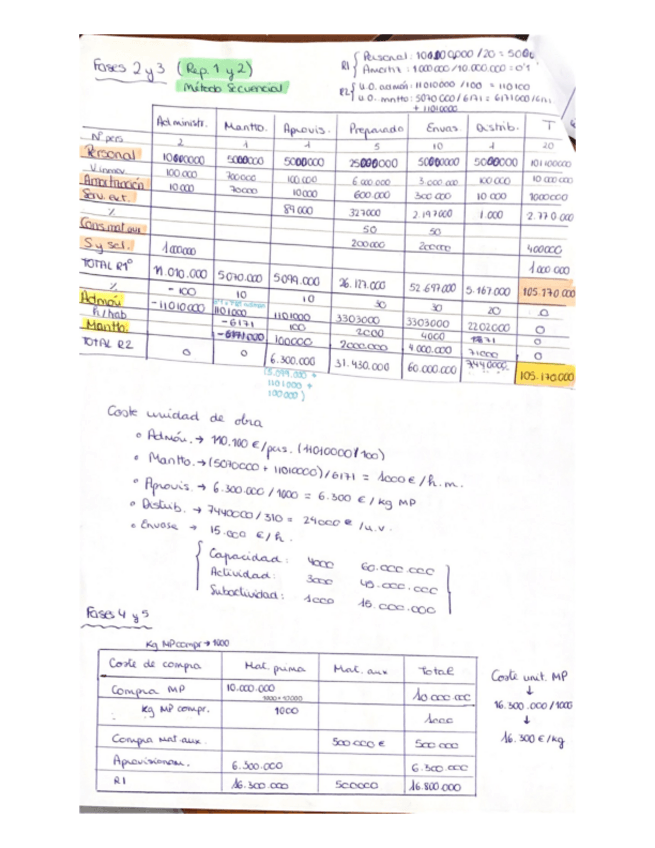 Fases 2 y 3 (Rep. 1 y 2)
Método Secuencial
R1 { Personal: 100.000.000 / 20 = 5000
Amortit: 1000000 / 10.000.000 = 0'1
R2 { u.o. admón: 11010000 / 100 = 110100
u.o. mntto: 5070000 / 6171 = 6171000/6171
+ 1101000
Administr. Mantto. Aprovis. Preparado Envas. Distrib. T
Nº pers 2 1 1 5 10 1 20
Personal 10000000 5000000 5000000 25000000 50000000 5000000 101.00000
V. inmov. 100 000 700000 100.000 6 000 000 3.000.000 100 000 10 000 000
Amortización 10.000 70000 10000 600.000 300 000 10 000 1000000
Serv. ext. 89 000 327000 2.197000 1.000 2.770.000
% 50 50
Cons mat aux 200000 200000 400000
S y sal. 1000000 1000 000
TOTAL R1º 11.010.000 5070.000 5099.000 26.127.000 52.697.000 5.167.000 105.170.000
% -100 10 10 30 30 20 0
Admón -11010000 1101000 1101000 3303000 3303000 2202000 0
h/hab -6171 100 2000 4000 71 0
Mantto. -6171000 100000 2000.000 4 000.000 71000 0
TOTAL R2 0 0 6.300.000 31.430.000 60.000.000 7440000 105.170.000
(5.099.000 +
1101000 +
100000)
Coste unidad de obra
• Admón. → 110.100 €/pers. (11010000/100)
• Mantto. → (5070000 + 11010000)/6171 = 1000 €/h.m.
• Aprovis. → 6.300.000 / 1000 = 6.300 €/kg MP
• Distrib. → 7440000/310 = 24000 €/u.v.
• Envase → 15.000 €/h.
{ Capacidad: 4000 60.000.000
Actividad: 3000 45.000.000
Subactividad: 1000 15.000.000
Fases 4 y 5
Kg MP compr → 1000
Coste de compra Mat. prima Mat. aux Total
Compra MP 10.000.000 10 000 000
Kg MP compr. 1000 1000
Compra Mat. aux. 500000 € 500 000
Aprovisionam. 6.300.000 6.300.000
R1 16.300.000 500000 16.800.000
Coste unit. MP
↓
16.300.000/1000
↓
16.300 €/kg